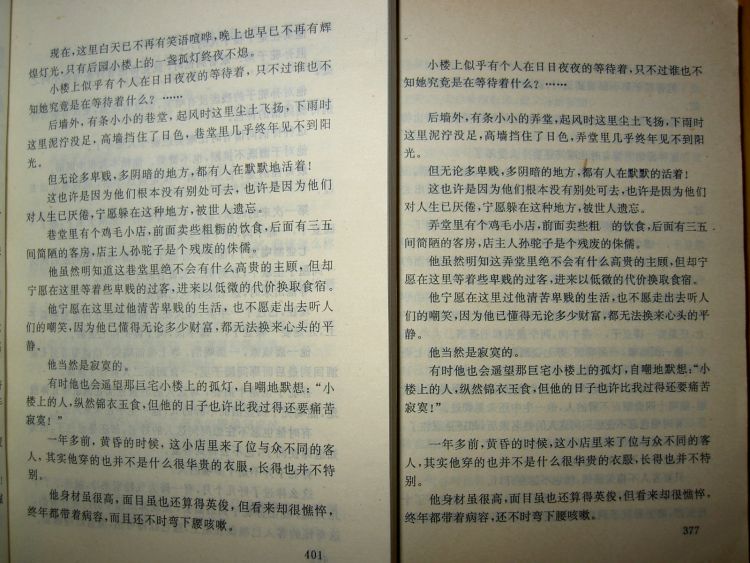 现在，这里白天已不再有笑语喧哗，晚上也早已不再有辉
煌灯光，只有后园小楼上的一盏孤灯终夜不熄。
小楼上似乎有个人在日日夜夜的等待着，只不过谁也不
知她究竟是在等待着什么？……
后墙外，有条小小的巷堂，起风时这里尘土飞扬，下雨时
这里泥泞没足，高墙挡住了日色，巷堂里几乎终年见不到阳
光。
但无论多卑贱，多阴暗的地方，都有人在默默地活着！
这也许是因为他们根本没有别处可去，也许是因为他们
对人生已厌倦，宁愿躲在这种地方，被世人遗忘。
巷堂里有个鸡毛小店，前面卖些粗粝的饮食，后面有三五
间简陋的客房，店主人孙驼子是个残废的侏儒。
他虽然明知道这巷堂里绝不会有什么高贵的主顾，但却
宁愿在这里等着些卑贱的过客，进来以低微的代价换取食宿。
他宁愿在这里过他清苦卑贱的生活，也不愿走出去听人
们的嘲笑，因为他已懂得无论多少财富，都无法换来心头的平
静。
他当然是寂寞的。
有时他也会遥望那巨宅小楼上的孤灯，自嘲地默想：“小
楼上的人，纵然锦衣玉食，但他的日子也许比我过得还要痛苦
寂寞！”
一年多前，黄昏的时候，这小店里来了位与众不同的客
人，其实他穿的也并不是什么很华贵的衣服，长得也并不特
别。
他身材虽很高，面目虽也还算得英俊，但看来却很憔悴，
终年都带着病容，而且还不时弯下腰咳嗽。
401
小楼上似乎有个人在日日夜夜的等待着，只不过谁也不
知她究竟是在等待着什么？……
后墙外，有条小小的弄堂，起风时这里尘土飞扬，下雨时
这里泥泞没足，高墙挡住了日色，弄堂里几乎终年见不到阳
光。
但无论多卑贱，多阴暗的地方，都有人在默默的活着！
这也许是因为他们根本没有别处可去，也许是因为他们
对人生已厌倦，宁愿躲在这种地方，被世人遗忘。
弄堂里有个鸡毛小店，前面卖些粗 的饮食，后面有三五
间简陋的客房，店主人孙驼子是个残废的侏儒。
他虽然明知这弄堂里绝不会有什么高贵的主顾，但却
宁愿在这里等着些卑贱的过客，进来以低微的代价换取食宿。
他宁愿在这里过他清苦卑贱的生活，也不愿走出去听人
们的嘲笑，因为他已懂得无论多少财富，都无法换来心头的平
静。
他当然是寂寞的。
有时他也会遥望那巨宅小楼上的孤灯，自嘲地默想：“小
楼上的人，纵然锦衣玉食，但他的日子也许比我过得还要痛苦
寂寞！”
一年多前，黄昏的时候，这小店里来了位与众不同的客
人，其实他穿的也并不是什么很华贵的衣服，长得也并不特
别。
他身材虽很高，面目虽也还算得英俊，但看来却很憔悴，
终年都带着病容，还不时弯下腰咳嗽。
377